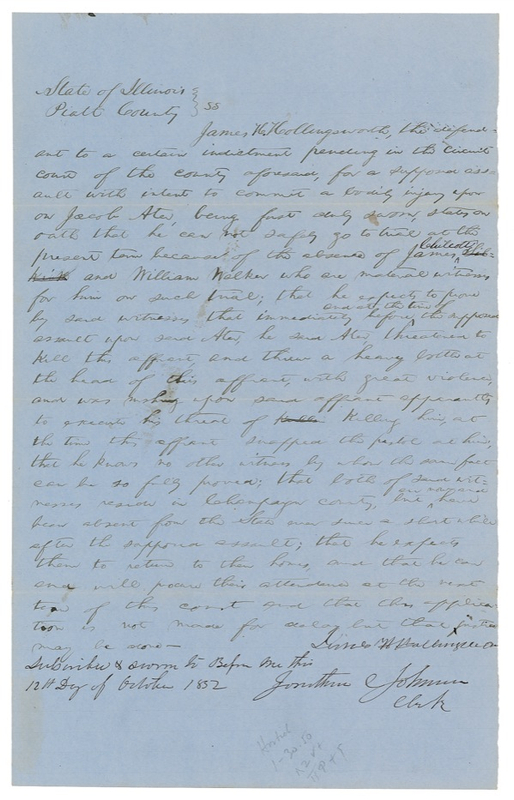 State of Illinois
Piatt County } ss
James H. Hollingsworth, the defend-
ant to a certain indictment pending in the Circuit
court of the county aforesaid, for a supposed assa
ult with intent to commit a bodily injury upon
on Jacob Ater, being first duly sworn, states on
oath that he can not safely go to trial at the
present term because of the absence of James Chilcott
and William Walker who are material witnesses
for him on such trial; that he expects to prove
and at the time of
by said witnesses that immediately before, the supposed
assault upon said Ater, he said Ater threatened to
kill this affiant, and threw a heavy bottle at
the head of this affiant, with great violence,
and was making upon said affiant apparently
to execute his threat of killing him, at
the time this affiant snapped the pistol at him,
that he knows no other witness by whom the same fact
can be so fully proved; that both of said wit-
nesses reside in Champaign county, but have
been absent from the State ever since a short while
after the supposed assault; that he expects
them to return to their homes, and that he can
and will procure their attendance at the next
term of this court and that this applica
tion is not made for delay but that justice
may be done—
James H Hollingsworth
Subscribed & sworn to Before me this
12th Day of October 1852
Jonathan Johnson
Clerk
1-30-50